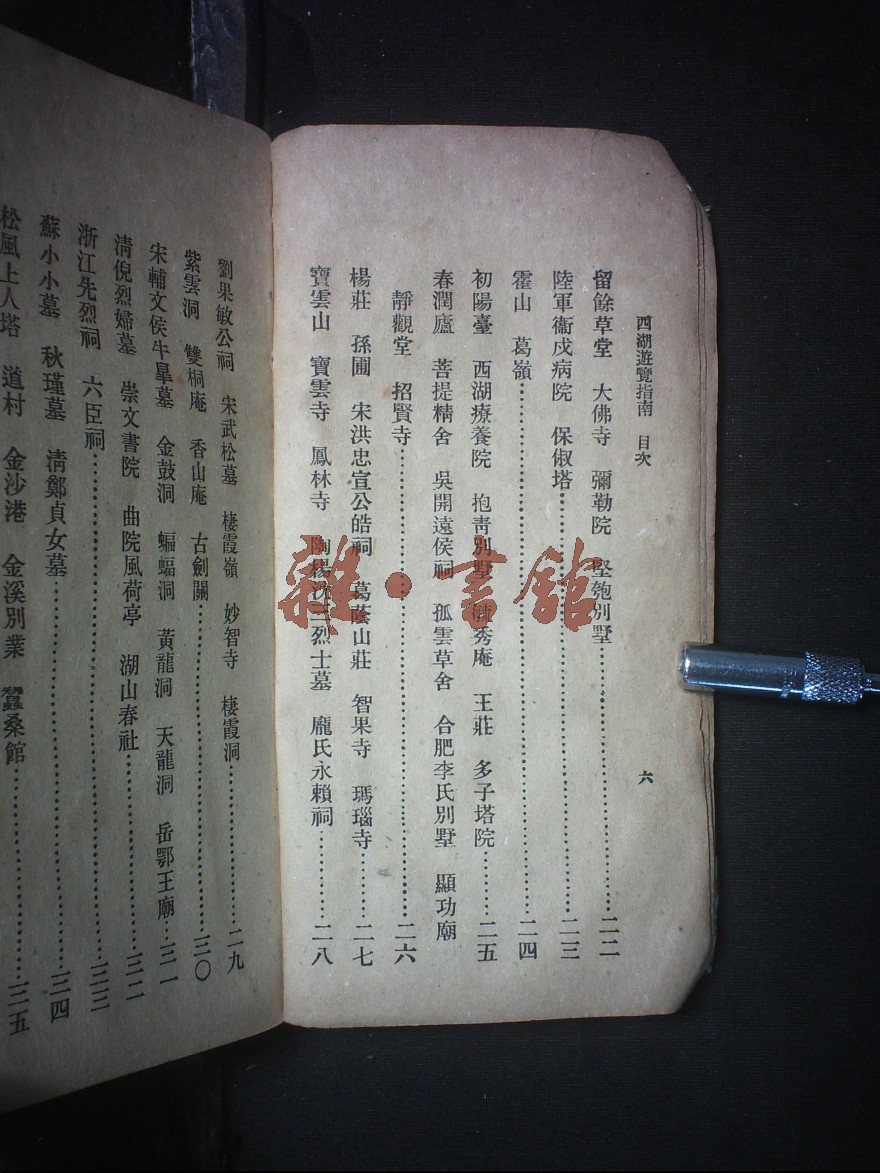 西湖遊覽指南 目次
六
留餘草堂 大佛寺 彌勒院 堅匏別墅……二二
陸軍衞戍病院 保俶塔……二三
霍山 葛嶺……二四
初陽臺 西湖療養院 抱靑別墅 毓秀庵 王莊 多子塔院……二五
春潤廬 菩提精舍 吳開遠侯祠 孤雲草舍 合肥李氏別墅 顯功廟
靜觀堂 招賢寺……二六
楊莊 孫圃 宋洪忠宣公皓祠 葛蔭山莊 智果寺 瑪瑙寺……二七
寶雲山 寶雲寺 鳳林寺 陶楊沈三烈士墓 龐氏永賴祠……二八
劉果敏公祠 宋武松墓 棲霞嶺 妙智寺 棲霞洞……二九
紫雲洞 雙桐庵 香山庵 古劍關……三〇
宋輔文侯牛臯墓 金鼓洞 蝙蝠洞 黃龍洞 天龍洞 岳鄂王廟……三一
淸倪烈婦墓 崇文書院 曲院風荷亭 湖山春社……三二
浙江先烈祠 六臣祠……三三
蘇小小墓 秋瑾墓 淸鄭貞女墓……三四
松風上人塔 道村 金沙港 金溪別業 蠶桑館……三五
雜·書館